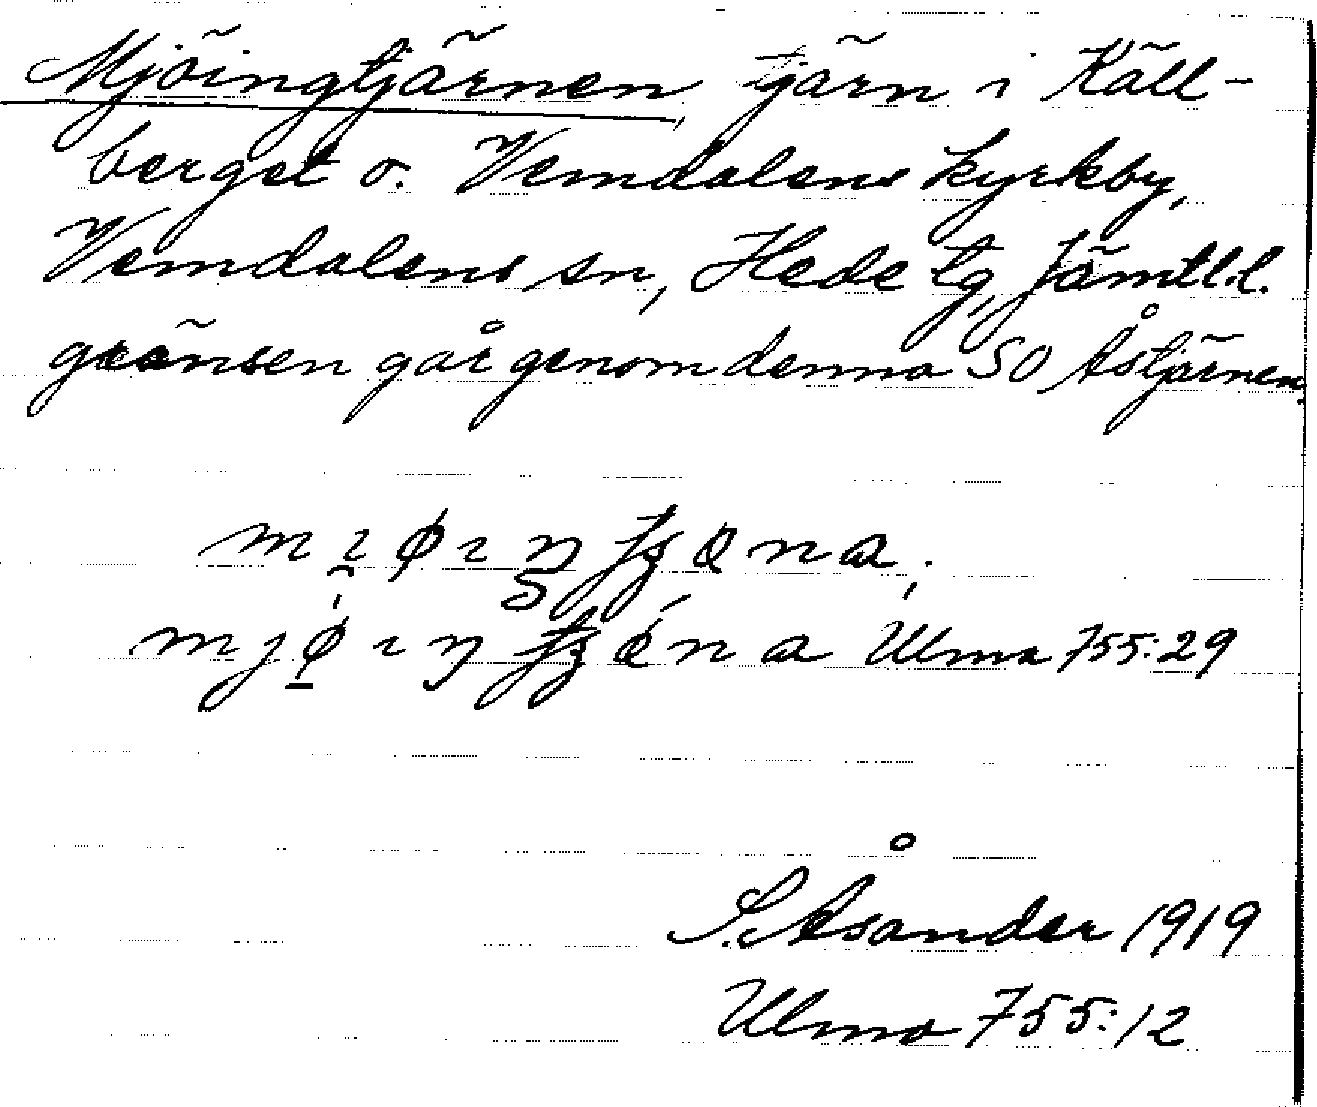 Mjöingtjärnen, tjärn i Käll-
berget o. Vemdalens kyrkby,
Vemdalens sn, Hede tg, Jämtl.l.
gränsen går genom denna SO Åstjärnen.
Ulma 755:29
S. Åsander 1919
Ulma 755:12